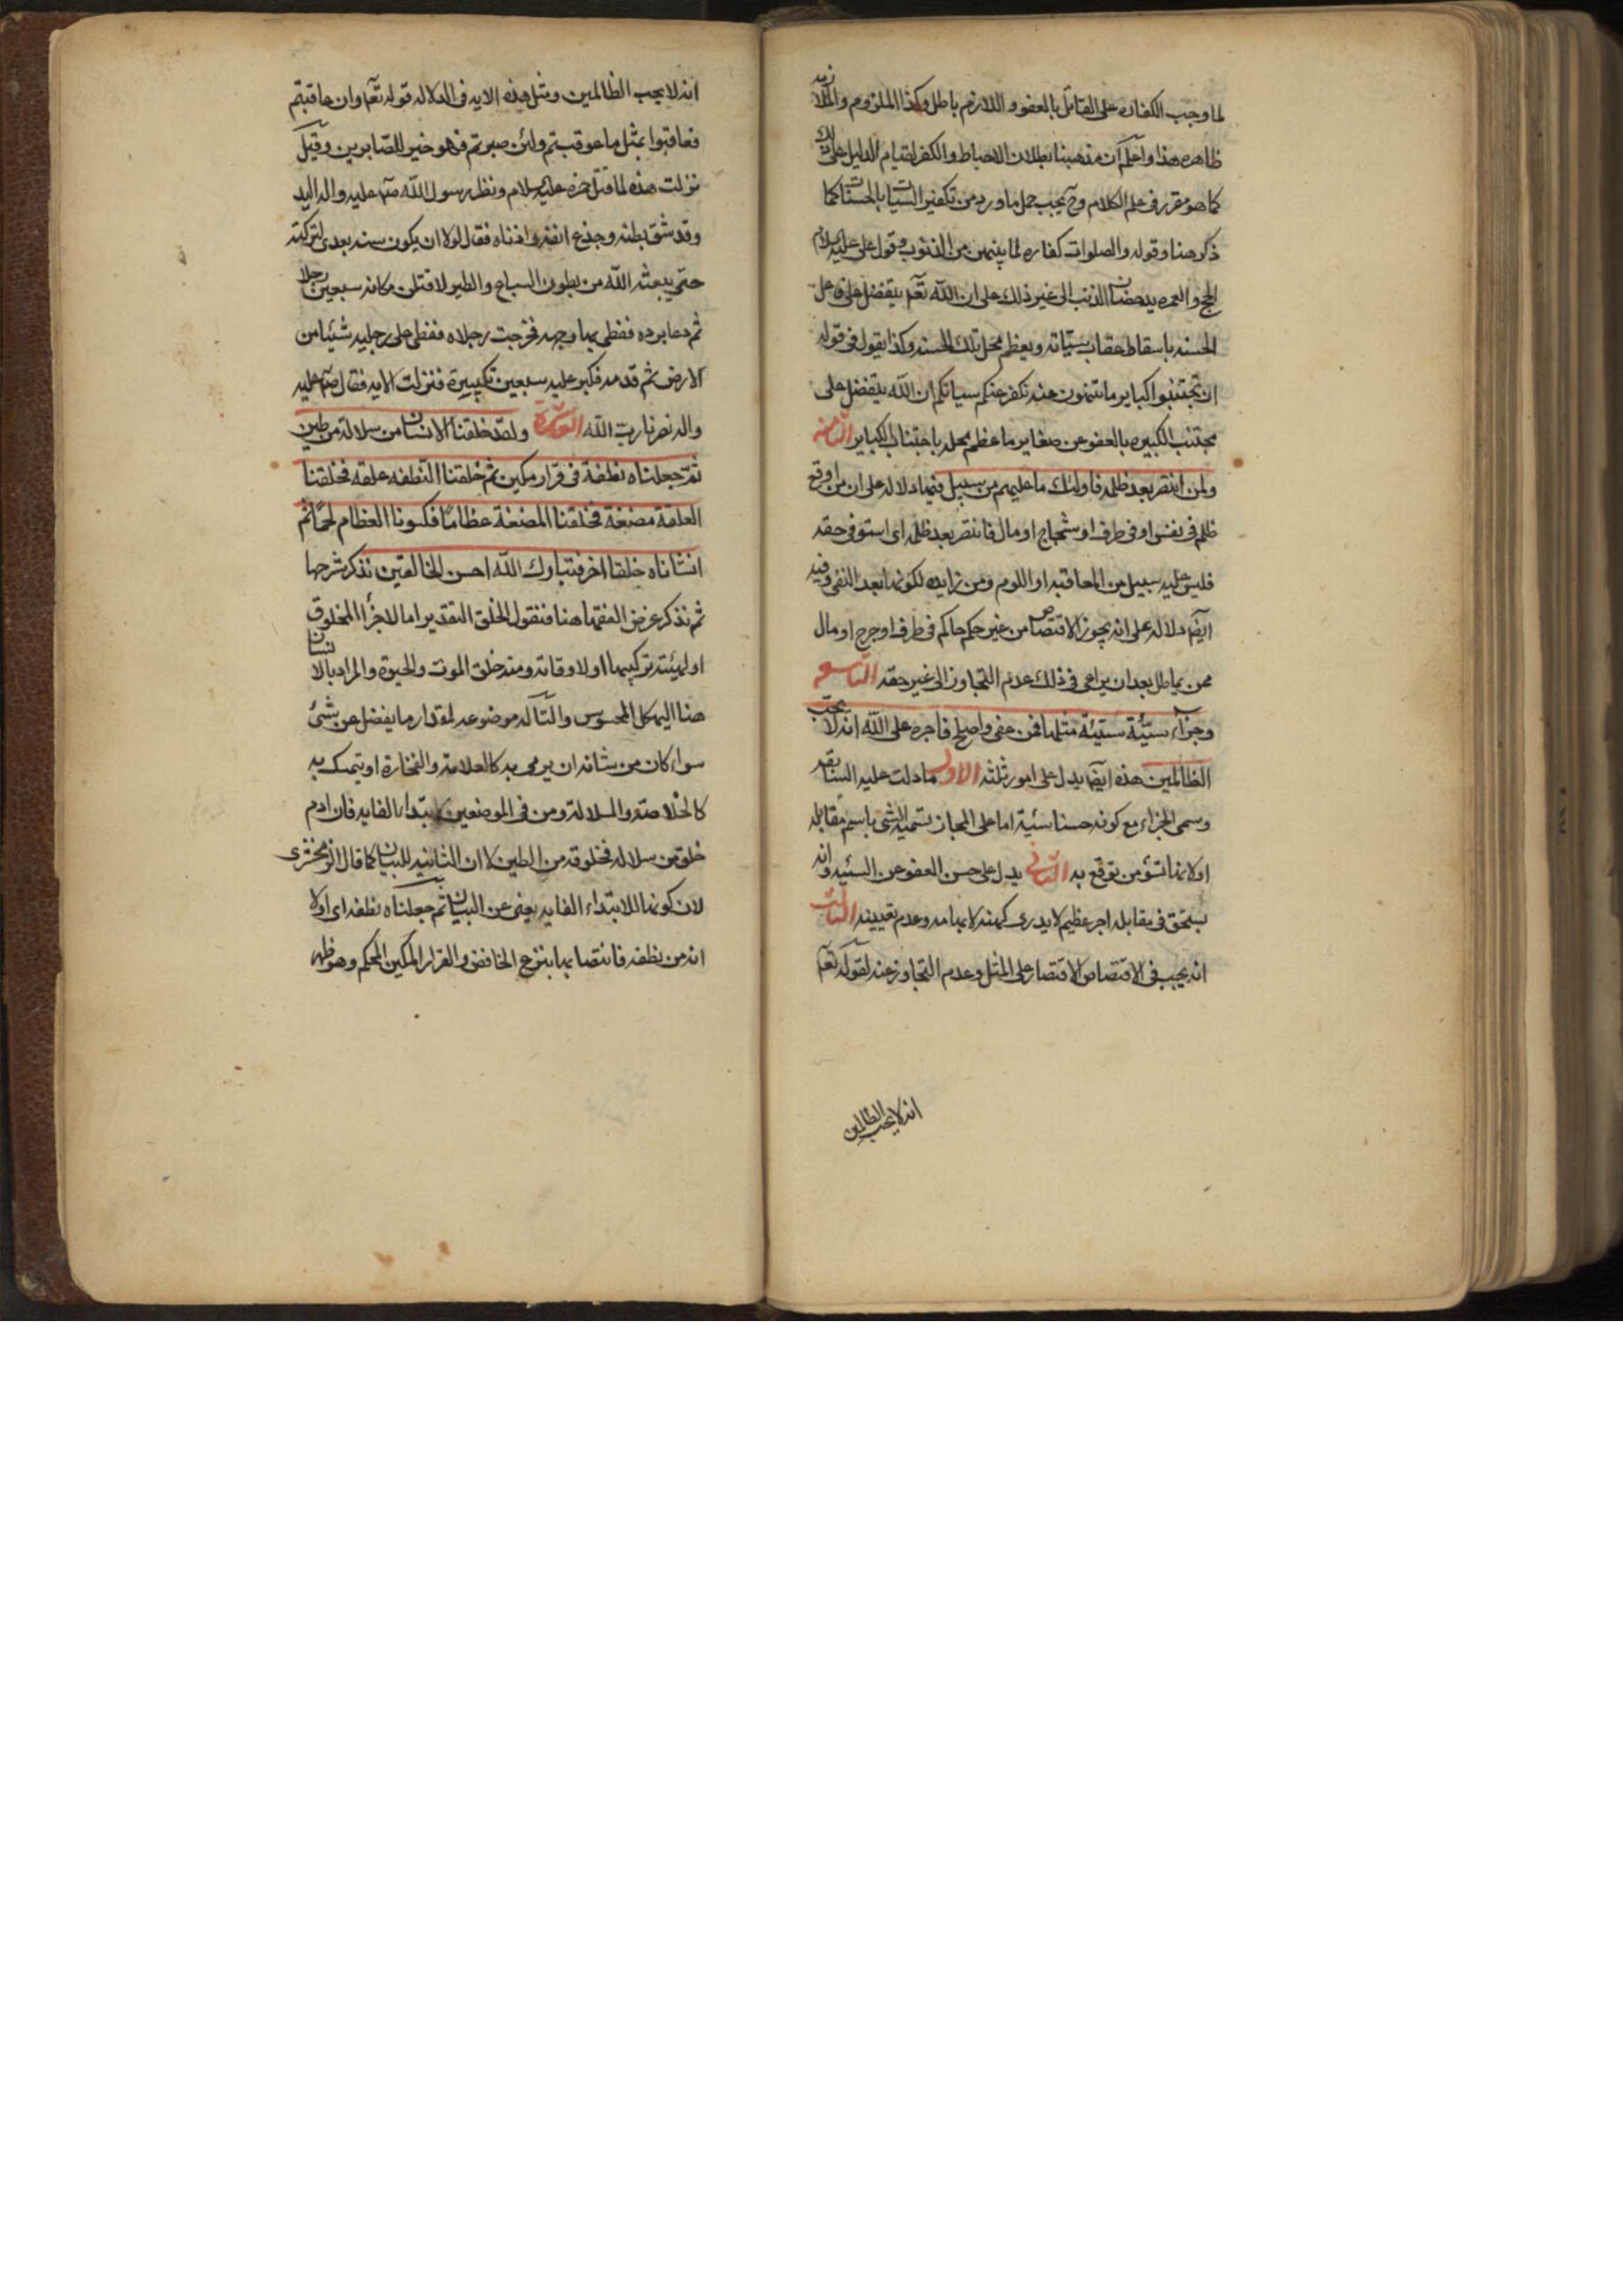 لما وجب الكفاره على القاتل بالعفو و اللازم باطل وكذا الملزوم والملازمه
ظاهره هذا واعلم ان مذهبنا بطلان الاحباط والكفر لقيام الدليل على ذلك
كما هو مقرر فى علم الكلام وح يجب حمل ما ورد من تكفير السيات بالحسنات كما
ذكر هنا وقوله والصلوات كفاره لما بينهن من الذنوب وقول على عليه السلام
الحج والعمره يدحضان الذنب الى غير ذلك على ان الله تعم يتفضل على فاعل
الحسنه باسقاط عقاب سيئاته ويعظم محل تلك الحسنه وكذا يقول فى قوله
ان تجتنبوا كباير ما تنهون عنه نكفر عنكم سياتكم ان الله يتفضل على
مجتنب الكبيره بالعفو عن صغاير ما عظم محله باجتناب الكباير الثامنه
ولمن انتصر بعد ظلمه فاولئك ما عليهم من سبيل فيها دلاله على ان من اوقع
ظلم فى نفس او فى طرف او شجاج او مال فانتصر بعد ظلمه اى استوفى حقه
فليس عليه سبيل من المعاقبه او اللوم ومن زايده لكونها بعد النفى وفيه
ايضا دلاله على انه يجوز الاقتصاص من غير حكم حاكم فى طرف او جرح او مال
ممن يماطل بعد ان يراعى فى ذلك عدم التجاوز الى غير حقه التاسعه
وجزاء سيئة سيئة مثلها فمن عفى واصلح فاجره على الله انه لا يحب
الظالمين هذه ايضا يدل على امور ثلثه الاول ما دلت عليه السابقه
وسمى الجزاء مع كونه حسنا سيئة اما على المجاز تسمية الشى باسم مقابله
او لانها تسؤ من توقع به الثانى يدل على حسن العفو عن السئيه وانه
يستحق فى مقابله اجر عظيم لا يدرى كهنه لابهامه وعدم تعيينه الثالث
انه يجب فى الاقتصاص الاقتصار على المثل وعدم التجاوز عنه لقوله تعم
انه لا يحب الظالمين
انه لا يحب الظالمين ومثل هذه الايه فى الدلاله قوله تعم وان عاقبتم
فعاقبوا بمثل ما عوقبتم ولئن صبرتم فهو خير للصابرين وقيل
نزلت هذه لما قتل حمزه عليه السلام ونظر رسول الله صم عليه واله اليه
وقد شق بطنه وجذع انفه واذناه فقال لولا ان يكون سنه بعدى لتركته
حتى يبعثه الله من بطون السباع والطير لاقتلن مكانه سبعين رجلا
ثم دعا بردة فغطى بها وجهه فخرجت رجلاه فغطى على رجليه شئيا من
الارض ثم قدمه فكبر عليه سبعين تكبيرة فنزلت الايه فقال صم عليه
واله نصرنا رب الله العاشرة ولقد خلقنا الانسان من سلالة من طين
ثم جعلناه نطفة فى قرار مكين ثم خلقنا النطفه علقه فخلقنا
العلقة مضغة فخلقنا المضغة عظاما فكسونا العظام لحما ثم
انشاناه خلقا اخر فتبارك الله احسن الخالقين نذكر شرحها
ثم نذكر عرض الفقها هنا فنقول الخلق التقدير اما لاجزأ المخلوق
او لهيئته تركيبها او لاوقاته ومنه خلق الموت والحيوة والمراد بالانسان
هنا الهيكل المحسوس والسلاله موضوعه لمقدار ما يفضل عن شئ
سواء كان من شانه ان يرمى به كالعلامة والنخارة او يتمسك به
كالخلاصة والسلالة ومن فى الموضعين لابتداء الغايه فان ادم
خلق من سلاله مخلوقه من الطين لا ان الثانيه للبيان كما قال الزمخشرى
لان كونها للابتداء الغايه يغنى عن البيان ثم جعلناه نطفه اى اولا
انه من نطفه فانتصابها بنزع الخافض والقرار المكين المحكم وهو ظهر